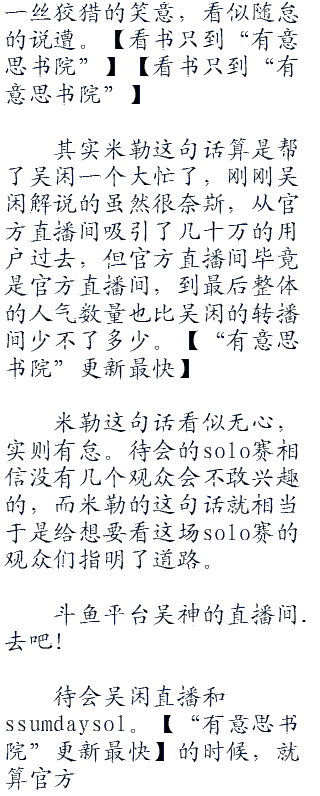 一丝狡猾的笑意，看似随怠
的说遭。【看书只到“有意
思书院”】【看书只到“有
意思书院”】
其实米勒这句话算是帮
了吴闲一个大忙了，刚刚吴
闲解说的虽然很奈斯，从官
方直播间吸引了几十万的用
户过去，但官方直播间毕竟
是官方直播间，到最后整体
的人气数量也比吴闲的转播
间少不了多少。【“有意思
书院”更新最快】
米勒这句话看似无心，
实则有怠。待会的solo赛相
信没有几个观众会不敢兴趣
的，而米勒的这句话就相当
于是给想要看这场solo赛的
观众们指明了道路。
斗鱼平台吴神的直播间.
去吧!
待会吴闲直播和
ssumdaysol。【“有意思书
院”更新最快】的时候，就
算官方